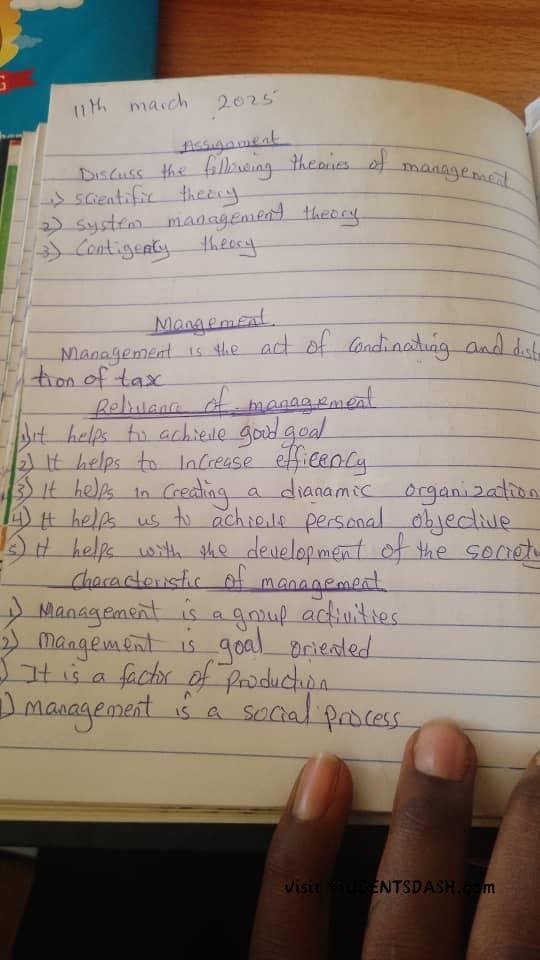 11th march 2025
Assignment
Discuss the following theories of management
1) scientific theory
2) system management theory
3) Contigenty theory
Mangement
Management is the act of Condinating and dist
tion of tax
Relivance of management
1) It helps to achieve good goal
2) It helps to increase efficency
3) It helps in Creating a dianamic organization
4) It helps us to achieve personal objective
5) It helps with the development of the society
Characteristic of management
1) Management is a group activities
2) mangement is goal oriented
) It is a factor of production
) management is a social process
visit STUDENTSDASH.com